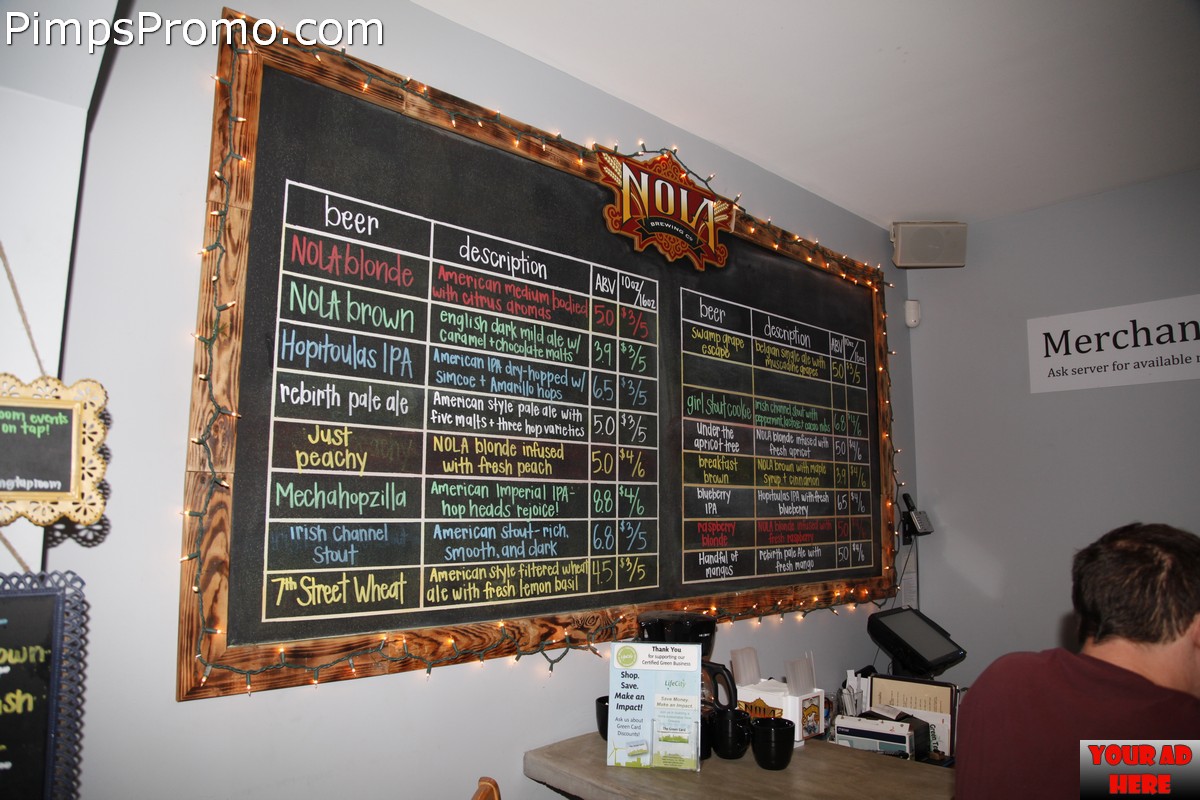 PimpsPromo.com
NOLA
BREWING CO
beer description ABV 10oz/16oz
NOLA blonde American medium bodied with citrus aromas 5.0 $3/5
NOLA brown english dark mild ale w/ caramel + chocolate malts 3.9 $3/5
Hopitoulas IPA American IPA dry-hopped w/ Simcoe + Amarillo hops 6.5 $3/5
rebirth pale ale American style pale ale with five malts + three hop varieties 5.0 $3/5
Just peachy NOLA blonde infused with fresh peach 5.0 $4/6
Mechahopzilla American Imperial IPA- hop heads rejoice! 8.8 $4/6
Irish Channel Stout American stout- rich, smooth, and dark 6.8 $3/5
7th Street Wheat American style filtered wheat ale with fresh lemon basil 4.5 $3/5
beer description ABV
swamp grape escape belgian single ale with muscadine grapes 5.0 $3/5
girl stout cookie irish channel stout with peppermint, lactose + cacao nibs 6.8 $4/6
Under the apricot tree NOLA blonde infused with fresh apricot 5.0 $4/6
breakfast brown NOLA brown with maple syrup + cinnamon 3.9 $4/6
blueberry IPA Hopitoulas IPA with fresh blueberry 6.5 $4/6
raspberry blonde NOLA blonde infused with fresh raspberry 5.0
Handful of mangos rebirth pale Ale with fresh mango 5.0 $4/6
Merchan
Ask server for available
room events
on tap!
own-
sh
Thank You
for supporting our
Certified Green Business
Shop.
Save.
Make an
Impact!
Ask us about
Green Card
Discounts!
LifeCity
Save Money.
Make an Impact!
The Green Card
NOLA
YOUR AD
HERE